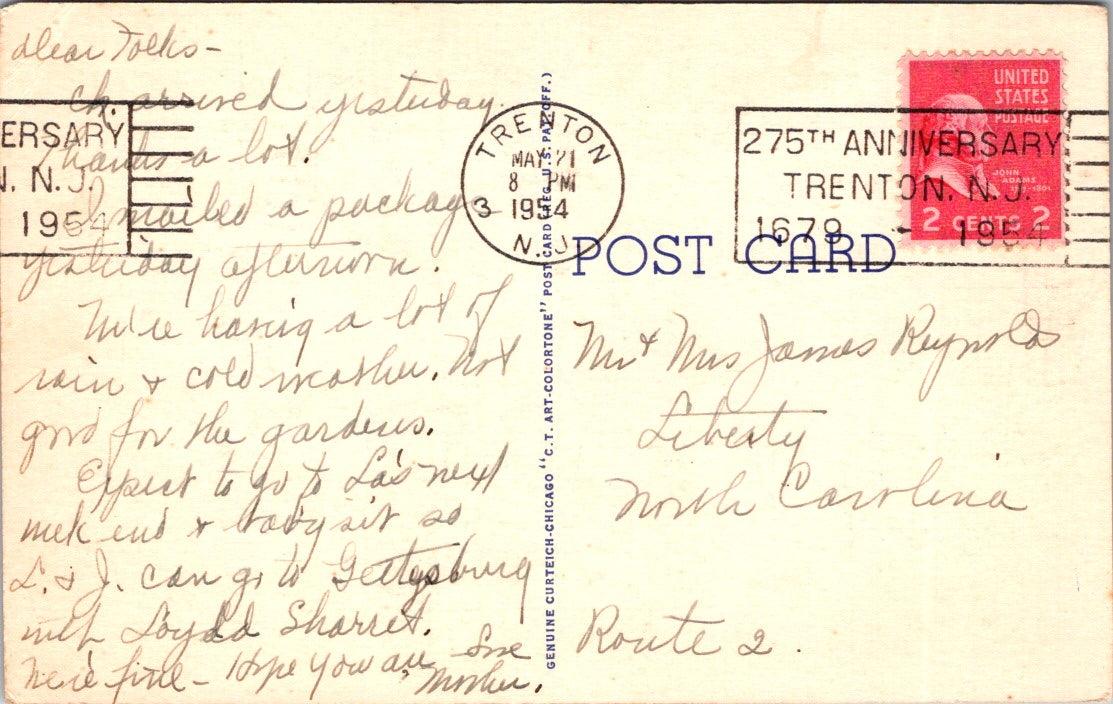 dear Folks -
Ck arrived yesterday.
Thanks a lot.
I mailed a package
yesterday afternoon.
We're having a lot of
rain & cold weather. Not
good for the gardens.
Expect to go to La's next
week end & baby sit so
L. & J. can go to Gettysburg
with Loyd & Sharret.
We're fine - Hope you are
Love
Mother.
ERSARY
N. N.J.
1954
TRENTON
MAY 21
8 PM
3 1954
N.J.
275TH ANNIVERSARY
TRENTON, N.J.
1679 - 1954
UNITED
STATES
POSTAGE
JOHN
ADAMS
1797-1801
2 CENTS 2
POST CARD
GENUINE CURTEICH-CHICAGO "C.T. ART-COLORTONE" POST CARD (REG. U.S. PAT. OFF.)
Mr & Mrs James Reynolds
Liberty
North Carolina
Route 2.